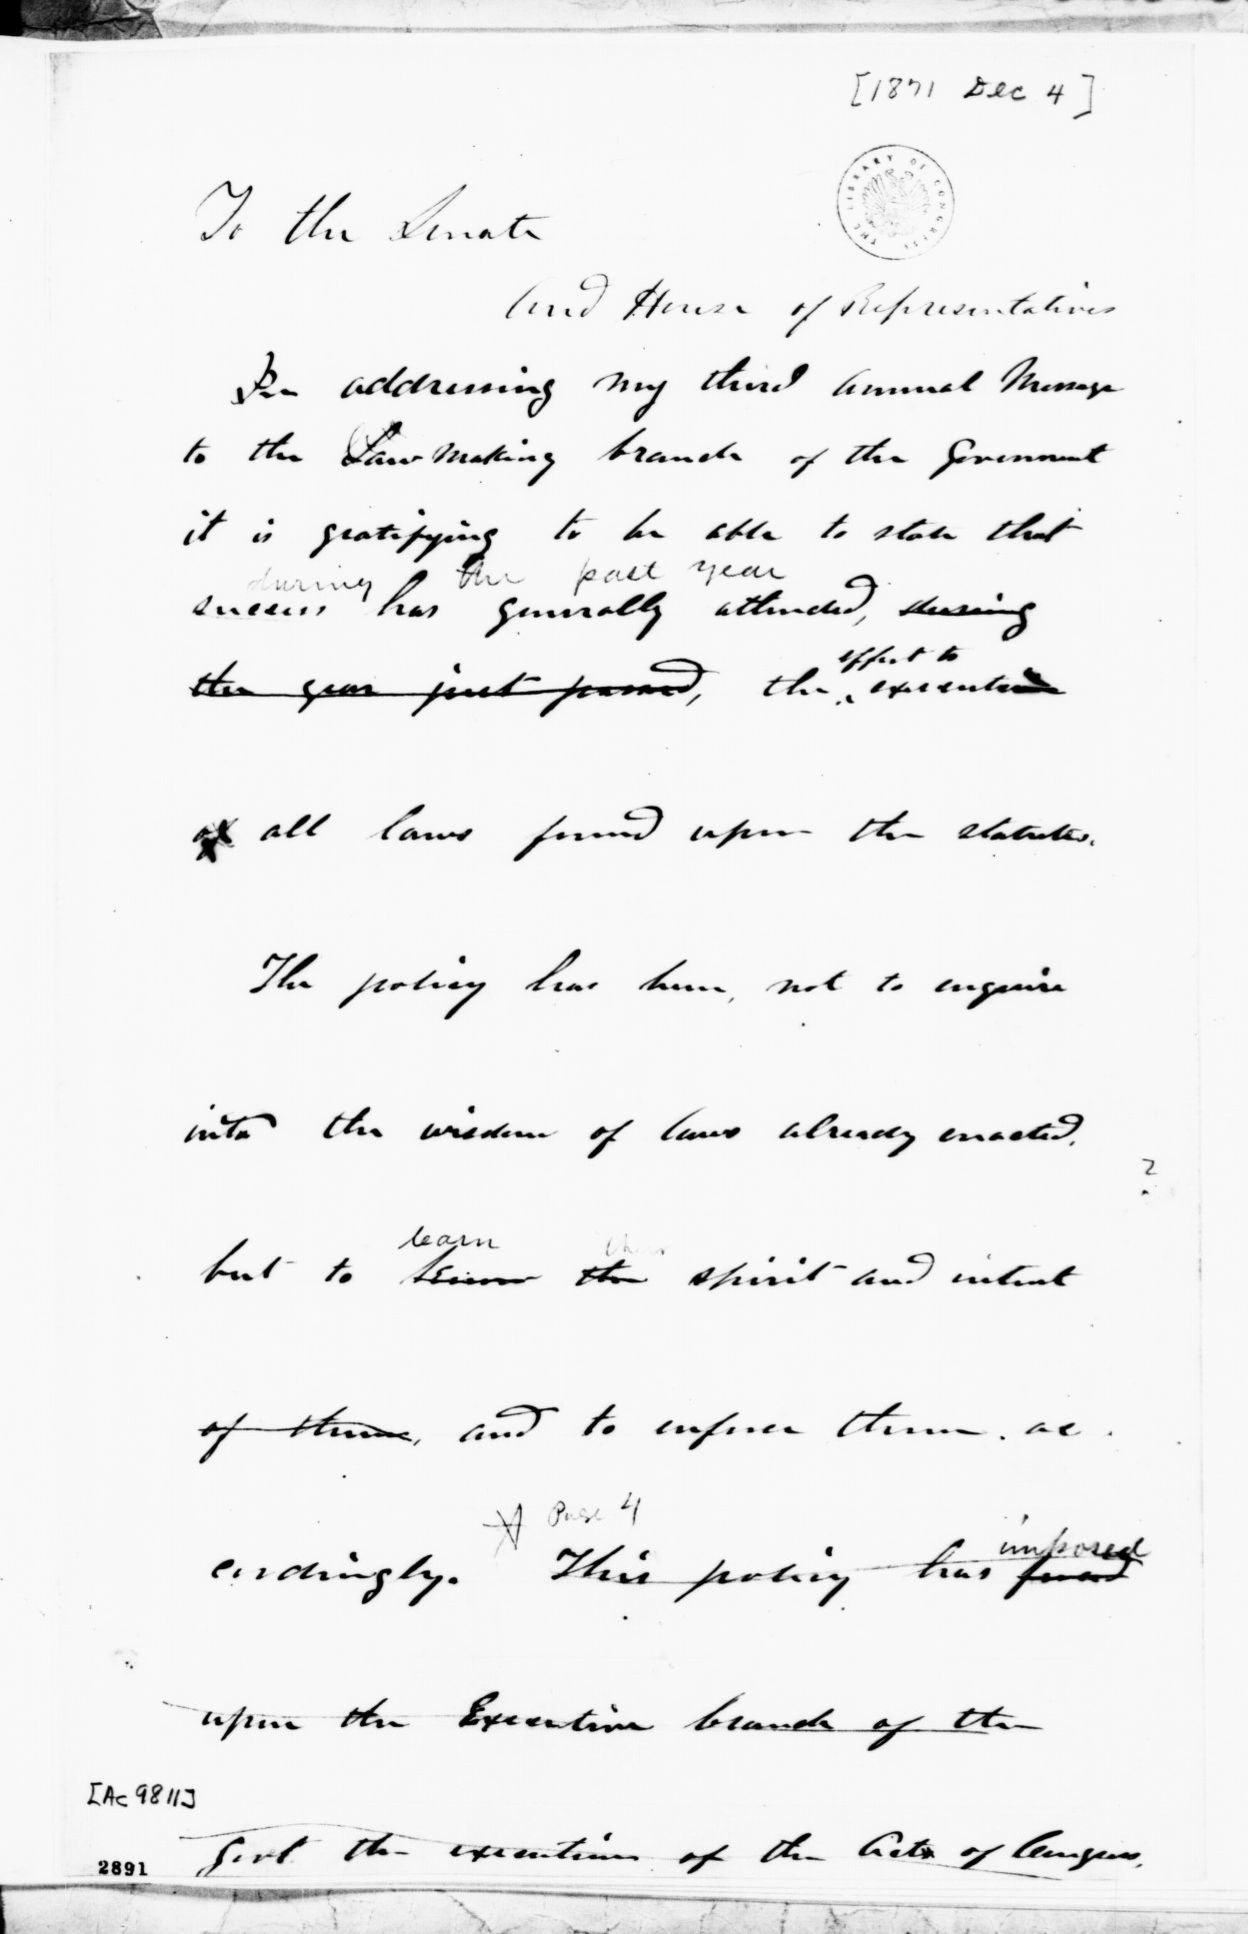 [1871 Dec 4]
THE LIBRARY OF CONGRESS
To the Senate
And House of Representatives
In addressing my third annual Message
to the Law Making branch of the Government
it is gratifying to be able to state that
during the past year
success has generally attended, during
effort to
the year just passed, the execution
of all laws found upon the statutes.
The policy has been, not to enquire
into the wisdom of laws already enacted,
?
learn their
but to know the spirit and intent
of them, and to enforce them ac
Page 4
imposed
cordingly. This policy has forced
upon the Executive branch of the
[Ac 9811]
Govt the execution of the Acts of Congress,
2891